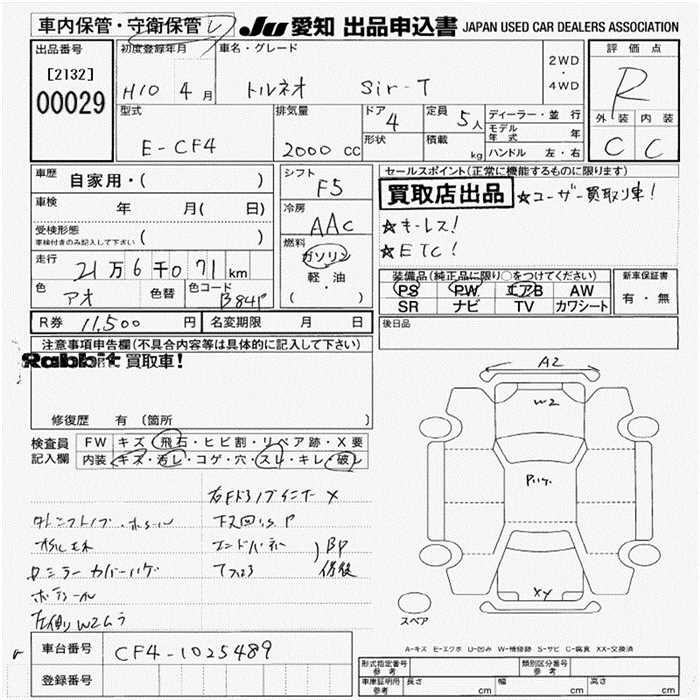 車内保管・守衛保管 レ JU 愛知 出品申込書 JAPAN USED CAR DEALERS ASSOCIATION
出品番号 初度登録年月 車名・グレード 2WD・4WD 評価点
[2132]
00029 H10 4月 トルネオ Sir-T R
型式 排気量 ドア 4 定員 5人 ディーラー・並行 外装 内装
モデル年式 年
E-CF4 2000 CC 形状 積載 kg ハンドル 左・右 C C
車歴 自家用・( ) シフト F5 セールスポイント(正常に機能するものに限ります)
買取店出品 ★ユーザー買取り車!
車検 年 月( 日) 冷房 AAC ★キーレス!
受検形態 車検付きのみ記入して下さい ( ) ★ETC!
走行 21万6千071km 燃料 ガソリン 軽・油 ( )
装備品(純正品に限り○をつけてください) 新車保証書
PS PW エアB AW 有・無
色 アオ 色替 色コード B84P SR ナビ TV カワシート
R券 11,500円 名変期限 月 日 後日品
注意事項申告欄(不具合内容等は具体的に記入して下さい)
Rabbit 買取車!
修復歴 有 (箇所
検査員記入欄 FW キズ・飛石・ヒビ割・リペア跡・X要
内装 キズ・汚レ・コゲ・穴・スレ・キレ・破レ
A2
W2
Pいけ
XY
スペア
下回りS P
BP
左側W2ムラ
A-キズ E-エクボ U-凹み W-補修跡 S-サビ C-腐食 XX-交換済
車台番号 CF4-1025489
登録番号
形式指定番号 参考 類別区分番号 参考
車庫証明用 参考 長さ cm 幅 cm 高さ cm